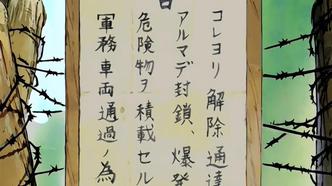 コレヨリ解除通達
アルマデ封鎖、爆発
危険物ヲ積載セル
軍務車両通過ノ為